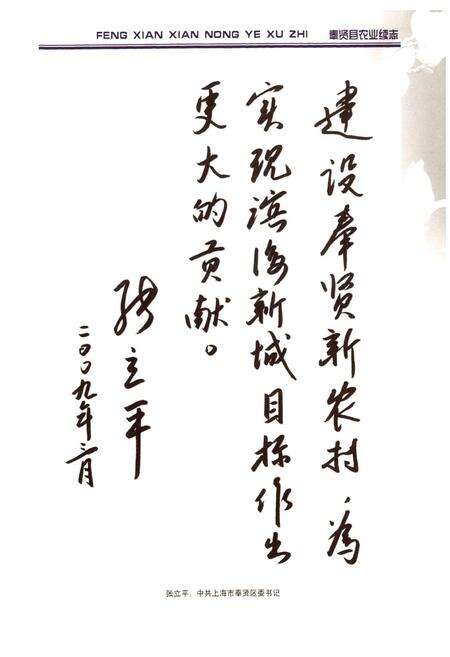 FENG XIAN XIAN NONG YE XU ZHI 奉贤县农业续志
建设奉贤新农村，为
实现滨海新城目标作出
更大的贡献。
张立平
二〇〇九年三月
张立平：中共上海市奉贤区委书记